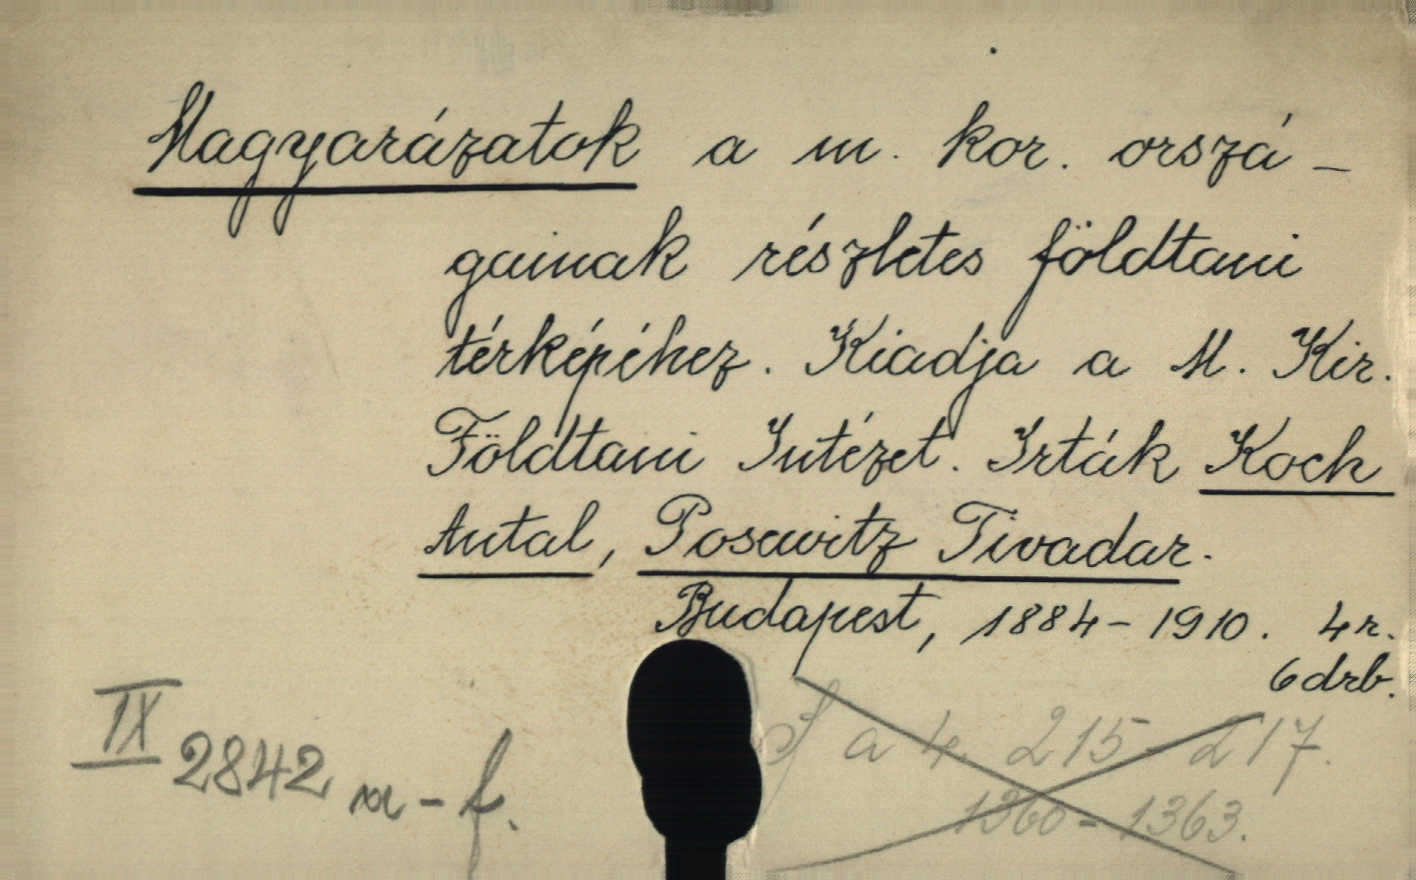 Magyarázatok a m. kor. orszá-
gainak részletes földtani
térképéhez. Kiadja a M. Kir.
Földtani Intézet. Irták Koch
Antal, Posewitz Tivadar.
Budapest, 1884-1910. 4r.
6 drb.
IX 2842 a-f.
a 4. 215-217.
1360-1363.